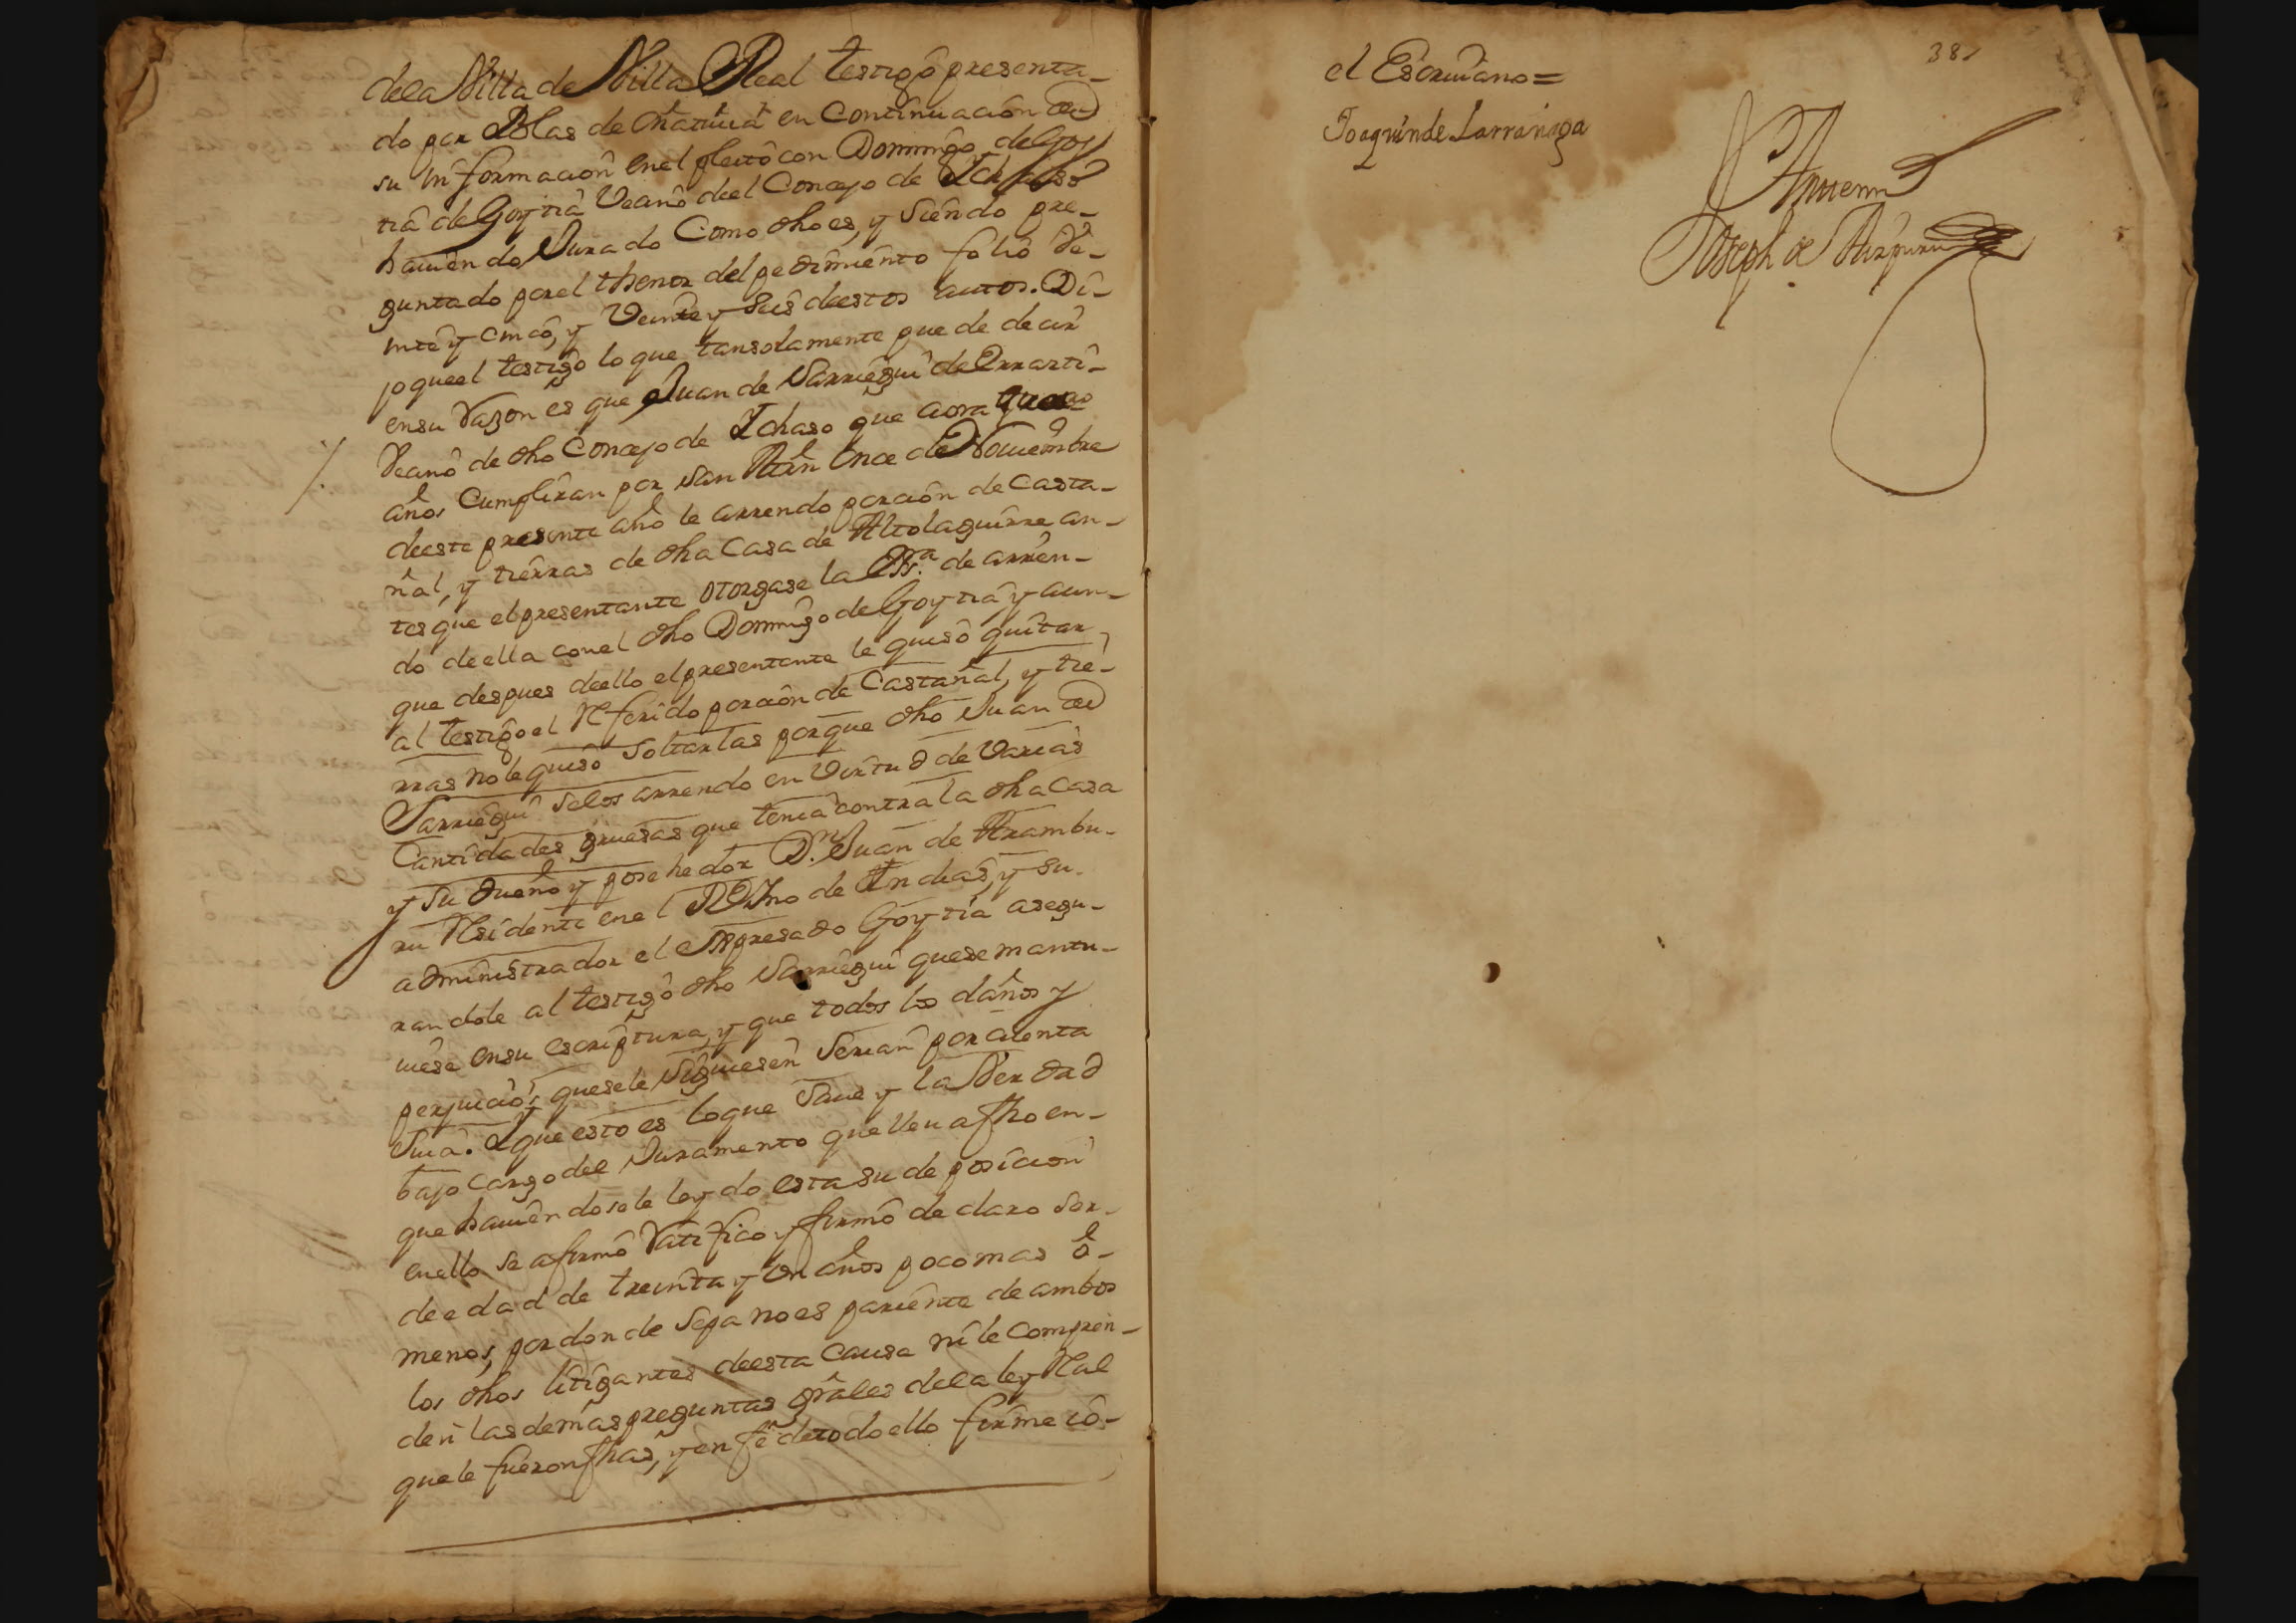 dela Villa de Villa Real testigo presenta-
do por Blas de en Continuacion de
su informacion enel pleito con Domingo de Goy
tia de Goytia Vecino deel Concejo de Ichaso
haviendo Jurado Como dho es, y Siendo pre-
guntado por el thenor del pedimiento folio Ve-
inte y cinco, y Veinte y Seis deestos autos. Di-
jo queel testigo lo que tansolamente puede decir
ensu Razon es que Juan de Sarriegui de Irrarti-
Vecino de dho Concejo de Ichaso que aora
años Cumpliran por San Mrn Once de Noviembre
deeste presente año le arrendo porcion de Casta-
ñal, y tierras de dha Casa de Altolaguirre an-
tes que el presentante otorgase la Essra de arrien-
do de ella con el dho Domingo de Goytia y aun-
que despues deello el presentante le quiso quitar
al testigo el Referido porcion de Castañal, y tie-
rras no le quiso Soltarlas porque dho Juan de
Sarriegui Selos arrendo en Virtud de Varias
Cantidades gruesas que tenia contra la dha Casa
y Su dueño y posehedor Dn Juan de Arambu-
ru Residente en el Reyno de Indias, y su
administrador el Expresado Goytia asegu-
randole al testigo dho Sarriegui quese mantu-
viese ensu escriptura, y que todos los daños y
perjuicios quesele Siguiesen Serian por cuenta
Suia. Y que esto es loque Save y la Verdad
bajo Cargo del Juramento que lleva fho en-
que haviendosele leydo esta su deposicion
enello Se afirmo Ratifico y firmo declaro Ser-
de edad de treinta y Un años poco mas ô-
menos, por donde Sepa no es pariente de ambos
los dhos litigantes deesta Causa ni le Compren-
den las demas preguntas grales dela ley Real
que le fueron fhas, y en fe de todo ello firme io-
38
el Escrivano=
Joaquin de Larrañaga
Antemi
Joseph de Aizpuru